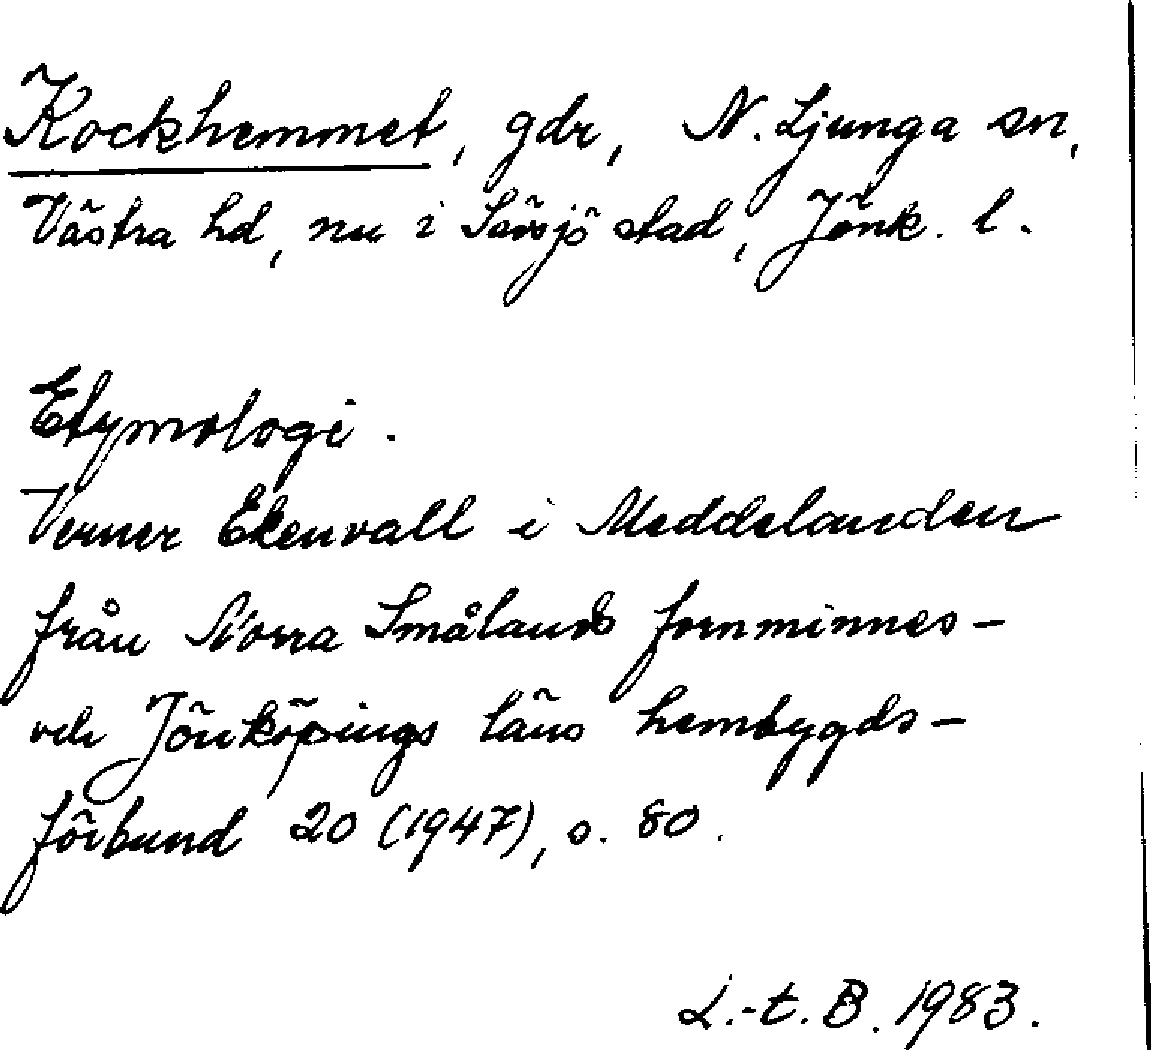 Kockhemmet, gdr, N. Ljunga sn,
Västra hd, nu i Sävsjö stad, Jönk. l.
Etymologi.
Verner Ekenvall i Meddelanden
från Norra Smålands fornminnes-
och Jönköpings läns hembygds-
förbund 20 (1947), s. 80.
L.-t. B. 1983.